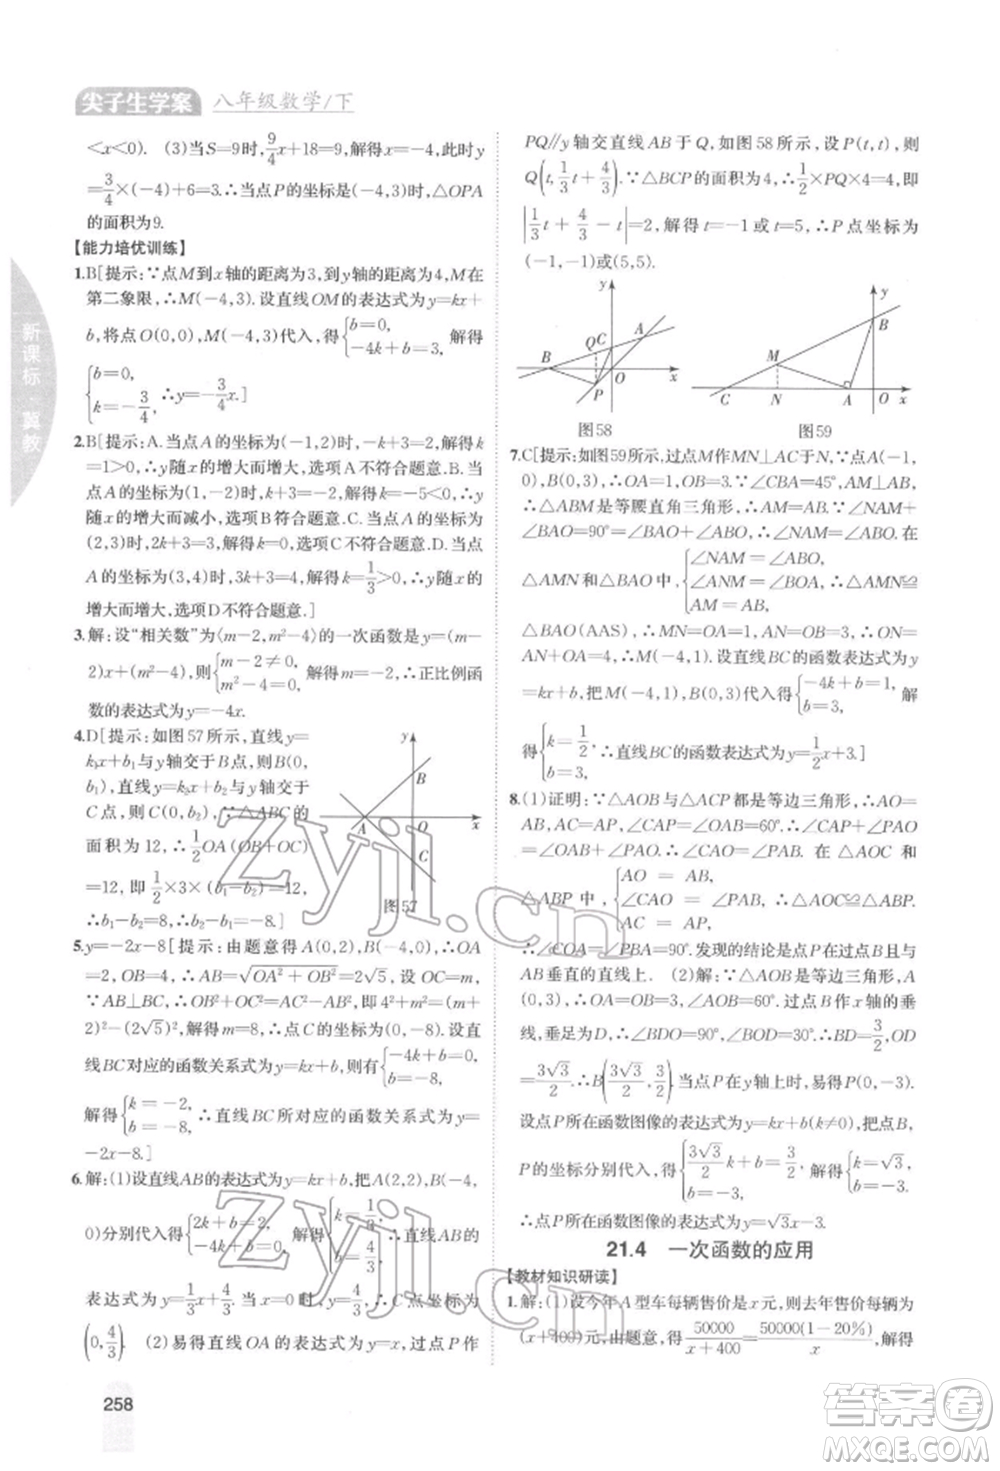 尖子生学案 八年级数学/下
<x<0). (3)当S=9时,9/4x+18=9,解得x=-4,此时y
=3/4×(-4)+6=3.∴当点P的坐标是(-4,3)时,△OPA
的面积为9.
【能力培优训练】
1.B[提示:∵点M到x轴的距离为3,到y轴的距离为4,M在
第二象限,∴M(-4,3).设直线OM的表达式为y=kx+
b,将点O(0,0),M(-4,3)代入,得{b=0, -4k+b=3,解得
{b=0, k=-3/4,∴y=-3/4x.]
2.B[提示:A.当点A的坐标为(-1,2)时,-k+3=2,解得k=
1>0,∴y随x的增大而增大,选项A不符合题意.B.当点
A的坐标为(1,-2)时,k+3=-2,解得k=-5<0,∴y随x
的增大而减小,选项B符合题意.C.当点A的坐标为
(2,3)时,2k+3=3,解得k=0,选项C不符合题意.D.当点
A的坐标为(3,4)时,3k+3=4,解得k=1/3>0,∴y随x的
增大而增大,选项D不符合题意.]
3.解:设“相关数”为〈m-2,m²-4〉的一次函数是y=(m-
2)x+(m²-4),则{m-2≠0, m²-4=0,解得m=-2.∴正比例函
数的表达式为y=-4x.
4.D[提示:如图57所示,直线y=
k₁x+b₁与y轴交于点B(0,
b₁),直线y=k₂x+b₂与y轴交于
点C,则C(0,b₂).∵△ABC的面
积为12,∴1/2OA·(OB+OC)
=12,即1/2×3×(b₁-b₂)=12,
∴b₁-b₂=8.∴b₂-b₁=-8.]
y B A O x C
图57
5.y=-2x-8[提示:由题意得A(0,2),B(-4,0).∴OA
=2,OB=4.∴AB=√(OA²+OB²)=2√5.设OC=m.
∵AB⊥BC,∴OB²+OC²=BC²=AC²-AB²,即4²+m²=(m+
2)²-(2√5)².解得m=8,∴点C的坐标为(0,-8).设直
线BC对应的函数关系式为y=kx+b,则{-4k+b=0, b=-8,
解得{k=-2, b=-8,∴直线BC所对应的函数关系式为y=
-2x-8.]
6.解:(1)设直线AB的表达式为y=kx+b,把A(2,2),B(-4,
0)分别代入,得{2k+b=2, -4k+b=0,解得{k=1/3, b=4/3,∴直线AB的
表达式为y=1/3x+4/3.令x=0,则y=4/3.∴点C的坐标为
(0,4/3). (2)易得直线OA的表达式为y=x,过点P作
PQ∥y轴交直线AB于Q,如图58所示,设P(t,t),则
Q(t,1/3t+4/3).∵△BCP的面积为4,∴1/2×PQ×4=4,即
|1/3t+4/3-t|=2,解得t=-1或t=5,∴P点坐标为
(-1,-1)或(5,5).
y Q C A B O x P
图58
y B M C N A O x
图59
7.C[提示:如图59所示,过点M作MN⊥AC于N,∵点A(-1,
0),B(0,3),∴OA=1,OB=3.∵∠CAB=45°,AM⊥AB,
∴△ABM是等腰直角三角形,∴AM=AB.∵∠NAM+
∠BAO=90°=∠BAO+∠ABO,∴∠NAM=∠ABO.在
△AMN和△BAO中,{∠NAM=∠ABO, ∠ANM=∠BOA, AM=AB,∴△AMN≌
△BAO(AAS).∴MN=OA=1,AN=OB=3,∴ON=4.
∴M(-4,1).设直线BC的函数表达式为y
=kx+b,把M(-4,1),B(0,3)代入得{-4k+b=1, b=3,解
得{k=1/2, b=3,∴直线BC的函数表达式为y=1/2x+3.]
8.(1)证明:∵△AOB与△ACP都是等边三角形,∴AO
=AB,AC=AP,∠CAP=∠OAB=60°.∴∠CAP+∠OAP
=∠OAB+∠OAP.∴∠CAO=∠PAB.在△AOC和
△ABP中,{AO=AB, ∠CAO=∠PAB, AC=AP,∴△AOC≌△ABP,
∴∠COA=∠PBA=90°.发现的结论是点P在过点B且与
AB垂直的直线上. (2)解:∵△AOB是等边三角形,A
(0,3),∴OB=OA=3,∠AOB=60°.过点B作x轴的垂
线,垂足为D,∴∠BDO=90°,∠BOD=30°.∴BD=3/2,OD
=3√3/2.∴B(3√3/2,3/2).当点P在y轴上时,易得P(0,-3).
设点P所在函数图像的表达式为y=kx+b(k≠0),把点B,
P的坐标分别代入,得{3√3/2k+b=3/2, b=-3,解得{k=√3, b=-3.
∴点P所在函数图像的表达式为y=√3x-3.
21.4 一次函数的应用
【教材知识研读】
1.解:(1)设今年A型车每辆售价是x元,则去年每辆售价为
(x+400)元,由题意,得50000/(x+400)=50000(1-20%)/x,解得
258
新课标·冀教
Zyjl.cn
Zyjl.cn
答案圈
MXQE.COM